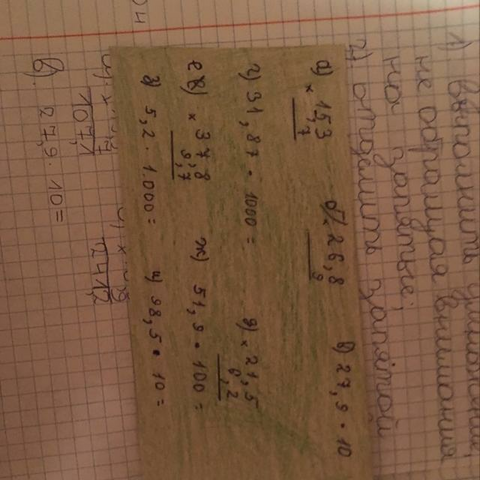 1) выполнить умножение,
не обращая внимания
на запятые;
2) отделить запятой
а) × 15,3 б) × 26,8 в) 27,9 · 10
7 9
г) 31,87 · 1000 = д) × 21,5
0,2
е) × 37,8 ж) 51,9 · 100 =
9,7
з) 5,2 · 1.000 = и) 98,5 · 10 =
107,1 241,2
в). 27,9 · 10 =